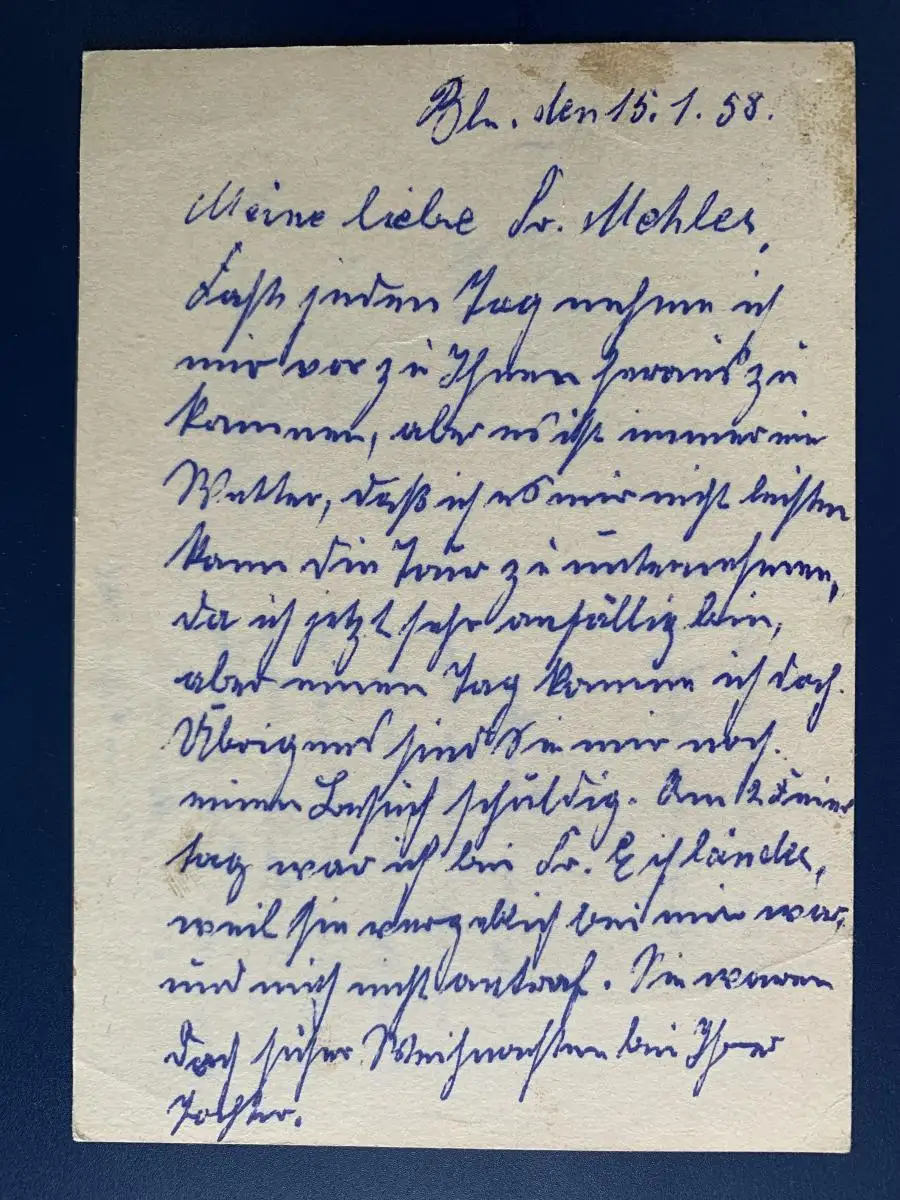 Bln. den 15.1.58.
Meine liebe Fr. Mehler,
Fast jeden Tag nehme ich
mir vor zu Ihnen heraus zu
kommen, aber es ist immer ein
Wetter, daß ich es mir nicht leisten
kann die Tour zu unternehmen,
da ich jetzt sehr anfällig bin,
aber einen Tag komme ich doch.
Übrigens sind Sie mir noch
einen Besuch schuldig. Am 2 Feier
tag war ich bei Fr.
weil sie vergeblich bei mir war,
und mich nicht antraf. Sie waren
doch sicher Weihnachten bei Ihrer
Tochter.